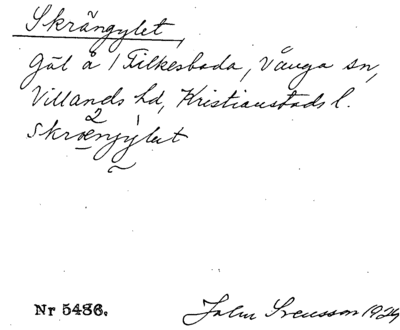 Skrängylet,
Göl å 1 Filkesboda, Vånga sn,
Villands hd, Kristianstads l.
2
skrænjylet
Nr 5486. John Svensson 1929